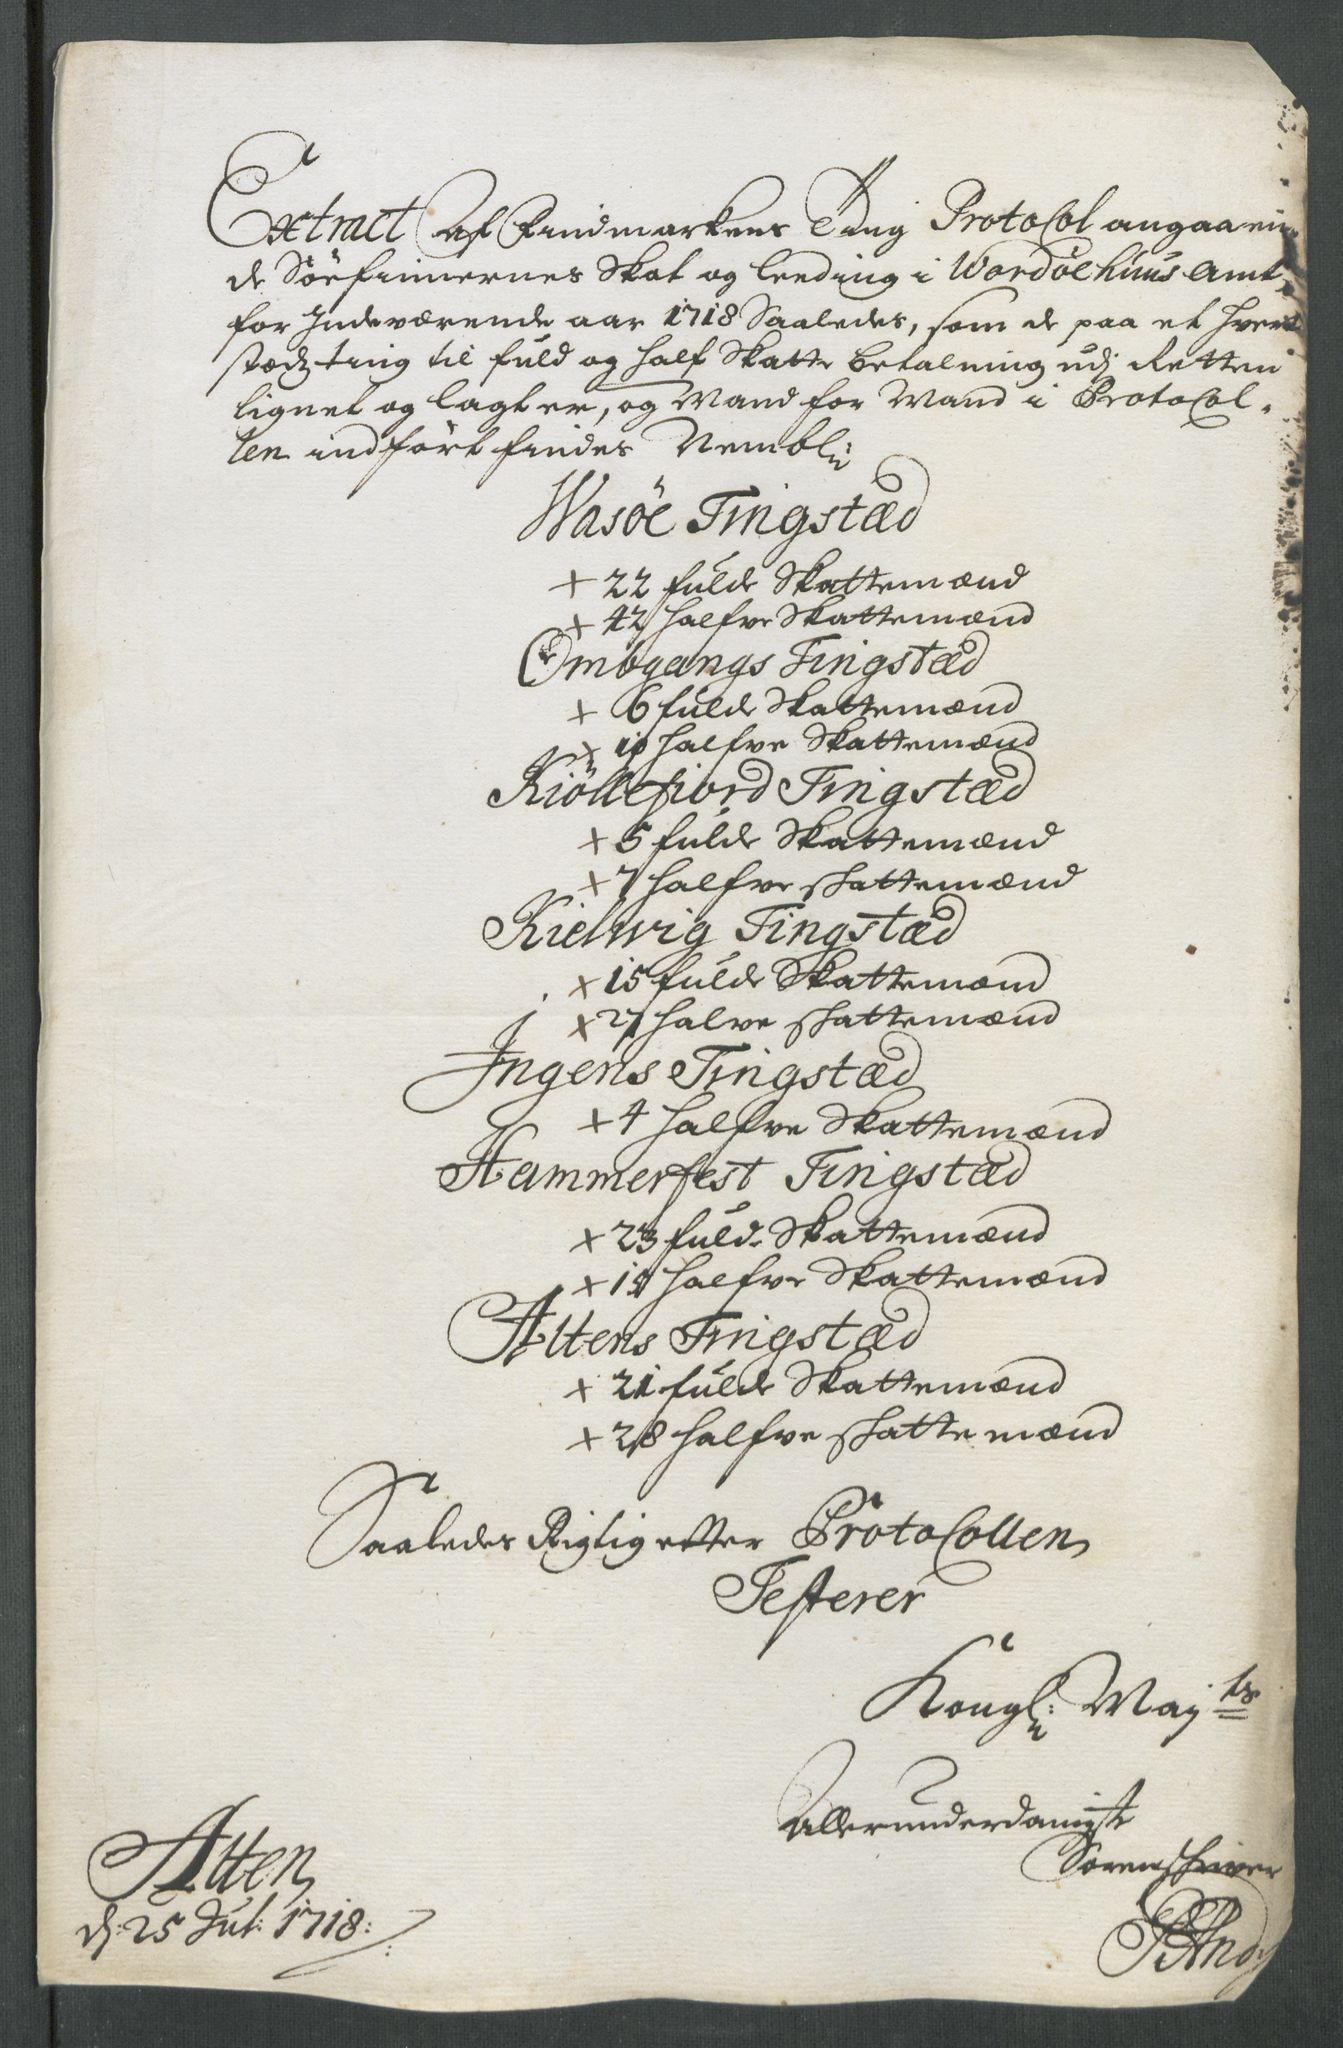 Extract Af Findmarkens Ting Protocol angaaen-
de Søefinnernes Skat og leeding i Wardøehuus Amt
for Indeværende aar 1718 Saaledes, som de paa et hvert
stædz ting til fuld og half Skatte betalning udj Retten
lignet og lagt er, og Mand for Mand i Protocol-
len indført findes Nembl:
Wasöe Tingstæd
+ 22 fulde Skattemænd
+ 42 halfve Skattemænd
Ombgangs Tingstæd
+ 6 fulde Skattemænd
+ 10 halfve Skattemænd
Kiöllefiord Tingstæd
+ 5 fulde Skattemænd
+ 7 halfve skattemænd
Kielwig Tingstæd
+ 15 fulde Skattemænd
+ 21 halve skattemænd
Ingens Tingstæd
+ 4 halfve Skattemænd
Hammerfest Tingstæd
+ 23 fulde Skattemænd
+ halfve Skattemænd
Altens Tingstæd
+ 21 fulde Skattemænd
+ 28 halfve skattemænd
Saaledes Rigtig efter Protocollen
Testerer
Kongl: May ts
Allerunderdanigste
Sorenschriver
Alten
d: 25 Jul: 1718: